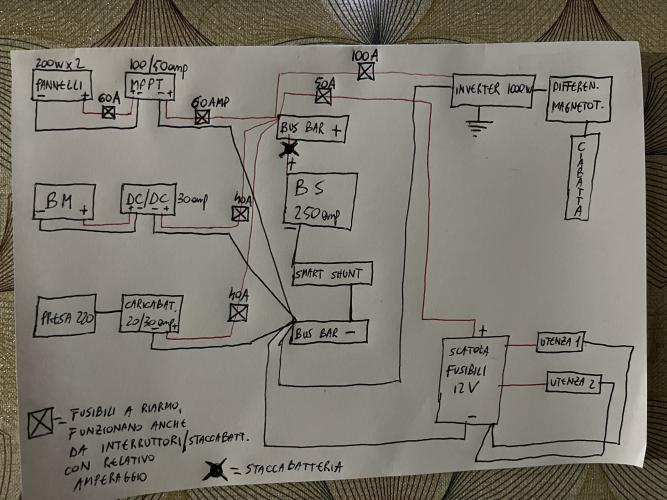 200W x 2
PANNELLI
- +
60A
100/50amp
MPPT
- + - +
60AMP
100A
50A
INVERTER 1000W
DIFFEREN.
MAGNETOT.
CIABATTA
BUS BAR +
+
BS
250amp
-
SMART SHUNT
BUS BAR -
BM
- +
DC/DC
+ - - +
30amp
40A
PRESA 220
CARICABAT.
20/30amp
- +
40A
+
SCATOLA
FUSIBILI
12V
-
UTENZA 1
UTENZA 2
= FUSIBILI A RIARMO,
FUNZIONANO ANCHE
DA INTERRUTTORI/STACCABATT.
CON RELATIVO
AMPERAGGIO
= STACCABATTERIA